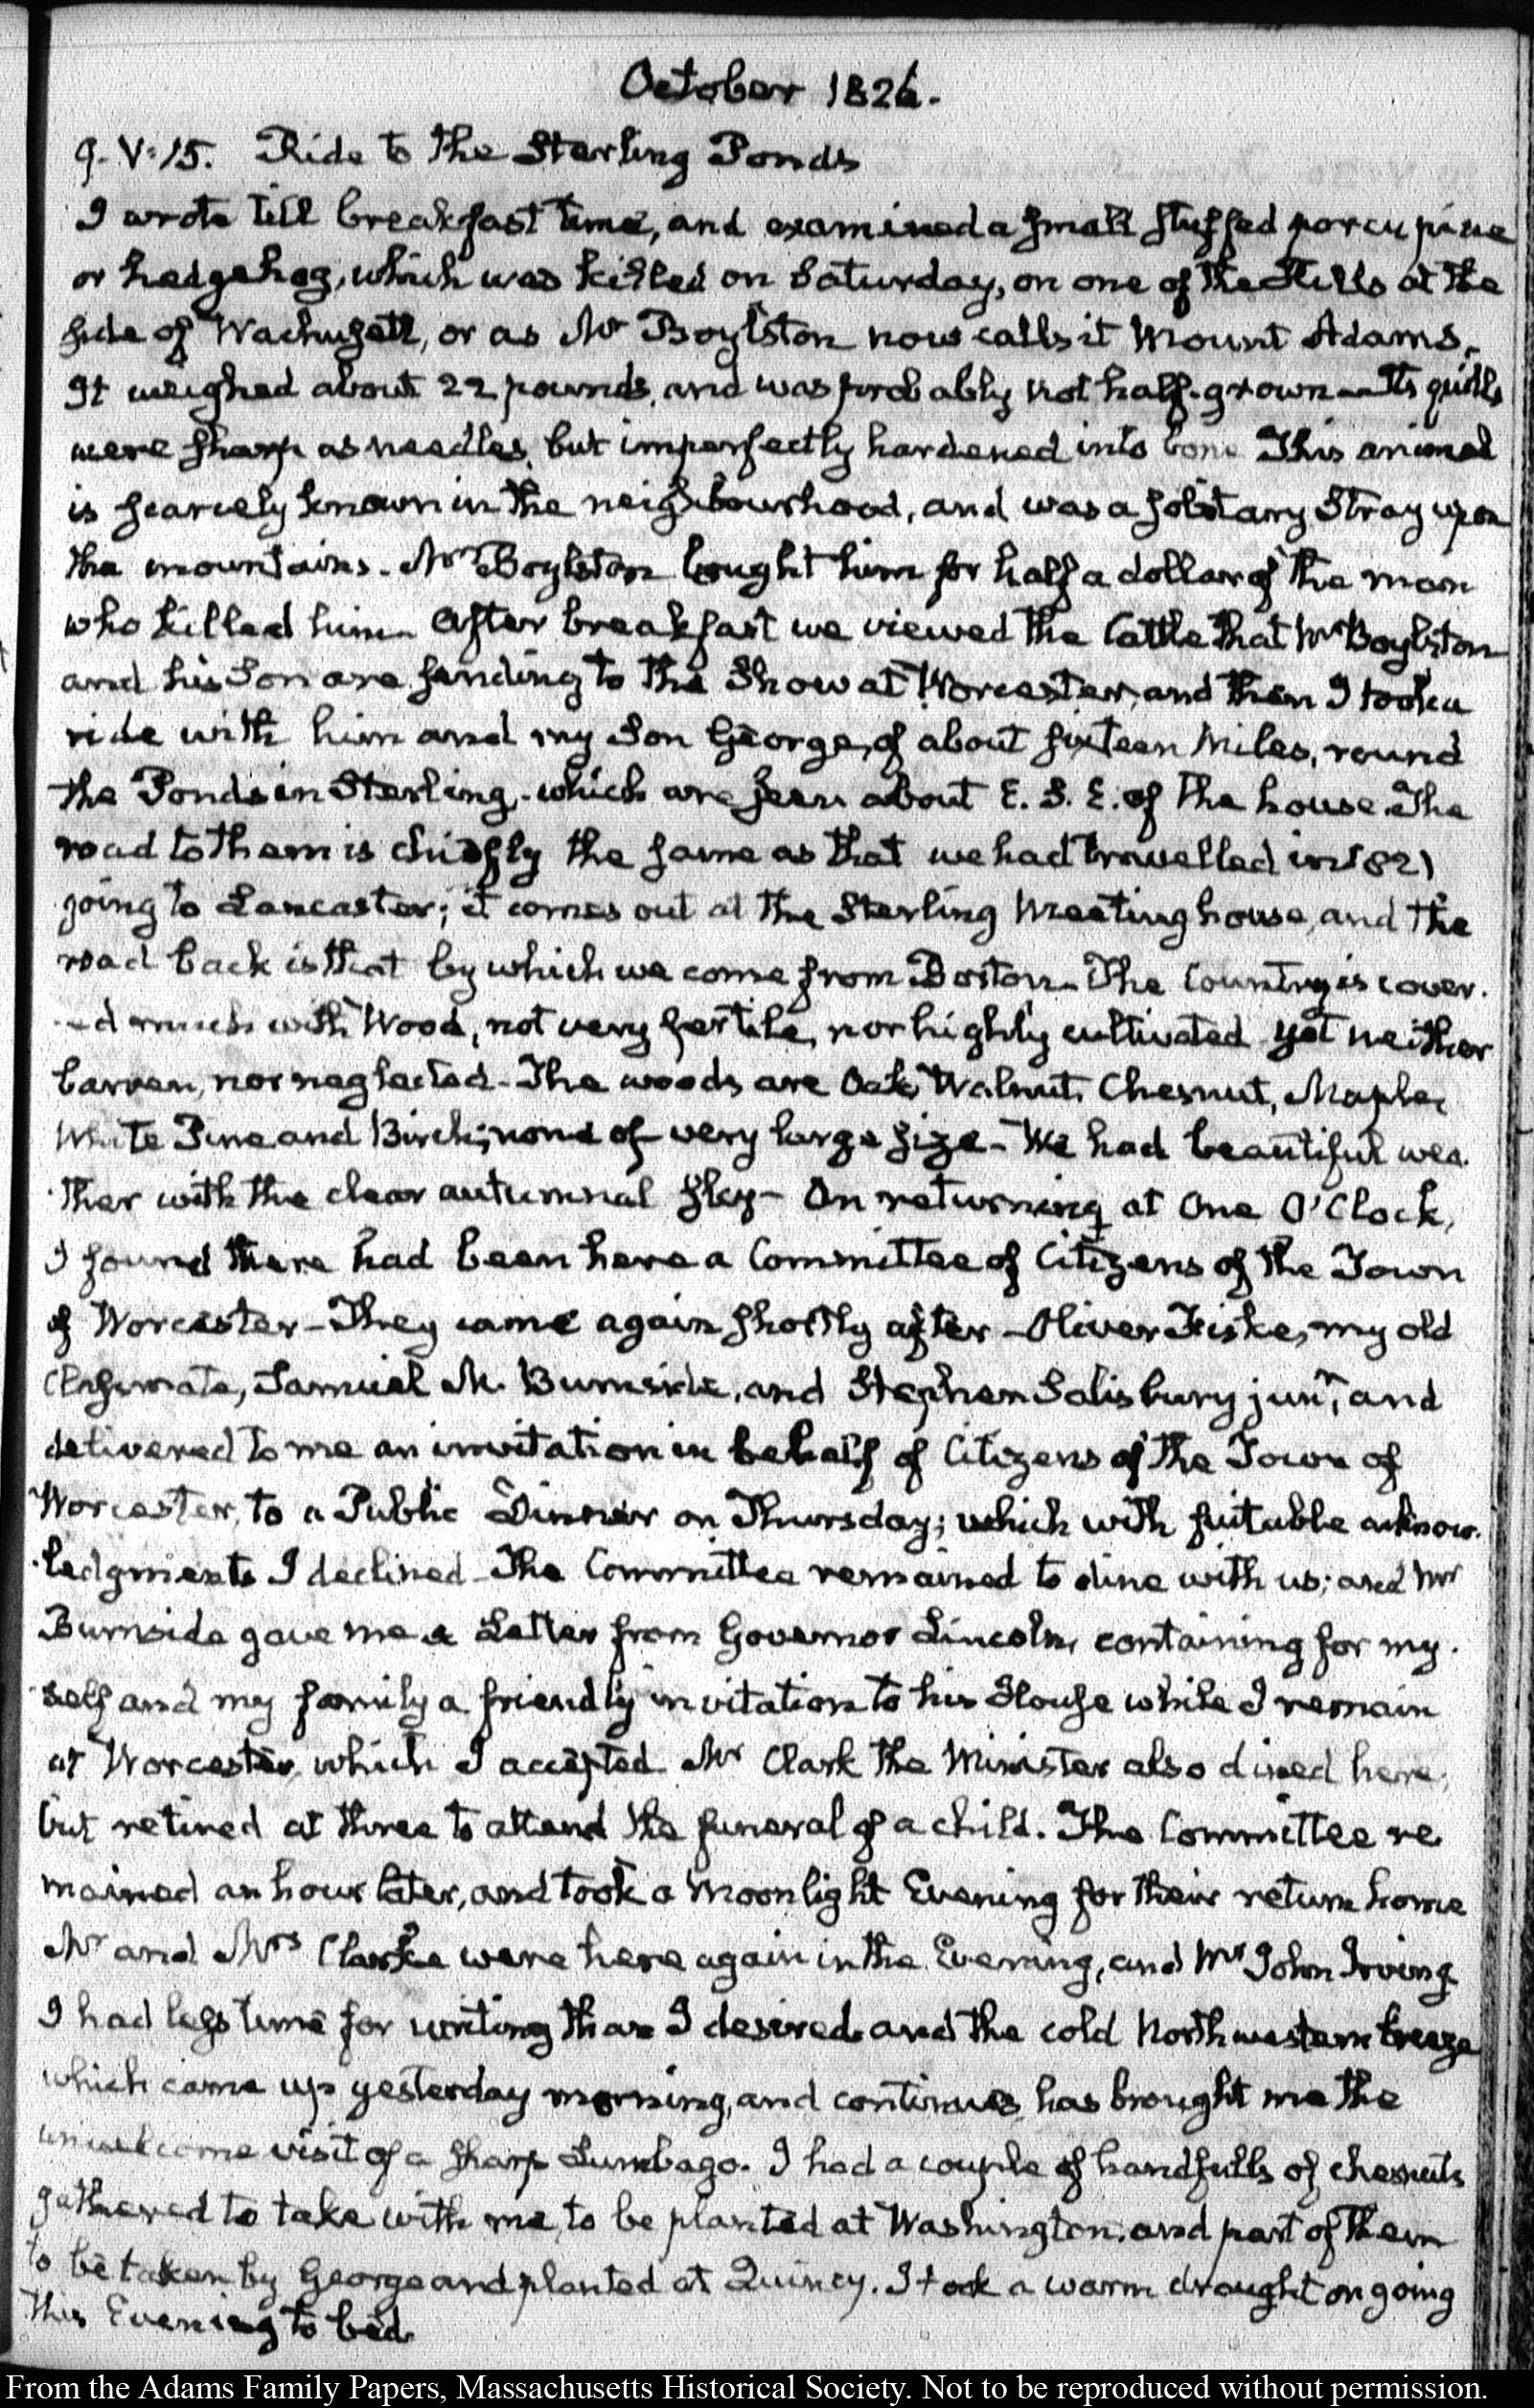 October 1826.
9. V:15. Ride to the Sterling Ponds
I wrote till breakfast time, and examined a small stuffed porcupine
or hedgehog, which was killed on Saturday, on one of the Hills at the
side of Wachusett, or as Mr Boylston now calls it Mount Adams.
It weighed about 22 pounds, and was probably not half-grown — Its quills
were sharp as needles, but imperfectly hardened into bone This animal
is scarcely known in the neighbourhood, and was a solitary stray upon
the mountains. Mr Boylston bought him for half a dollar of the man
who killed him. After breakfast we viewed the Cattle that Mr Boylston
and his Son are sending to the Show at Worcester, and then I took a
ride with him and my Son George, of about sixteen Miles, round
the Ponds in Sterling, which are seen about E. S. E. of the house. The
road to them is chiefly the same as that we had travelled in 1821
going to Lancaster; it comes out at the Sterling Meeting house, and the
road back is that by which we come from Boston — The Country is cover-
-ed much with Wood, not very fertile, nor highly cultivated yet neither
barren, nor neglected — The woods are Oak, Walnut, Chesnut, Maple,
White Pine and Birch; none of very large size — We had beautiful wea-
-ther with the clear autumnal sky — On returning at One O'Clock,
I found there had been here a Committee of Citizens of the Town
of Worcester — They came again shortly after — Oliver Fiske, my old
Classmate, Samuel M. Burnside, and Stephen Salisbury junr, and
delivered to me an invitation in behalf of Citizens of the Town of
Worcester, to a Public Dinner on Thursday; which with suitable acknow-
-ledgments I declined — The Committee remained to dine with us; and Mr
Burnside gave me a Letter from Governor Lincoln, containing for my-
-self and my family a friendly invitation to his House while I remain
at Worcester, which I accepted. Mr Clark the Minister also dined here;
but retired at three to attend the funeral of a child. The Committee re
mained an hour later, and took a Moonlight Evening for their return home
Mr and Mrs Clarke were here again in the Evening, and Mr John Irving
I had less time for writing than I desired and the cold Northwestern breeze
which came up yesterday morning, and continues, has brought me the
unwelcome visit of a sharp Lumbago. I had a couple of handfulls of chesnuts
gathered to take with me, to be planted at Washington, and part of them
to be taken by George and planted at Quincy. I took a warm draught on going
this Evening to bed.
From the Adams Family Papers, Massachusetts Historical Society. Not to be reproduced without permission.